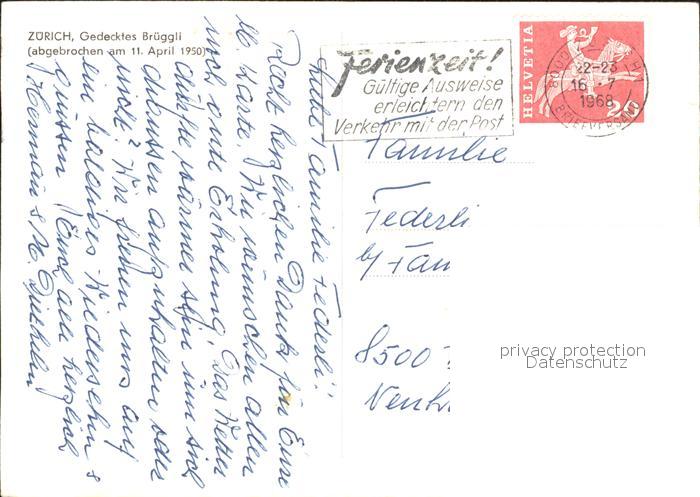 ZÜRICH, Gedecktes Brüggli
(abgebrochen am 11. April 1950)
Ferienzeit!
Gültige Ausweise
erleichtern den
Verkehr mit der Post
HELVETIA
22-23
16. 7
1968
BRIEFVERSAND
Familie
Federli
b/ Fam
8500
privacy protection
Datenschutz
Liebe Familie Federli!
Recht herzlichen Dank für Eure
lb. Karte. Wir wünschen allen
noch gute Erholung. Das Wetter
dürfte wärmer sein um sich
draussen aufzuhalten oder
nicht? Wir freuen uns auf
ein baldiges Wiedersehn &
grüssen Euch alle herzlich
Herman & M.